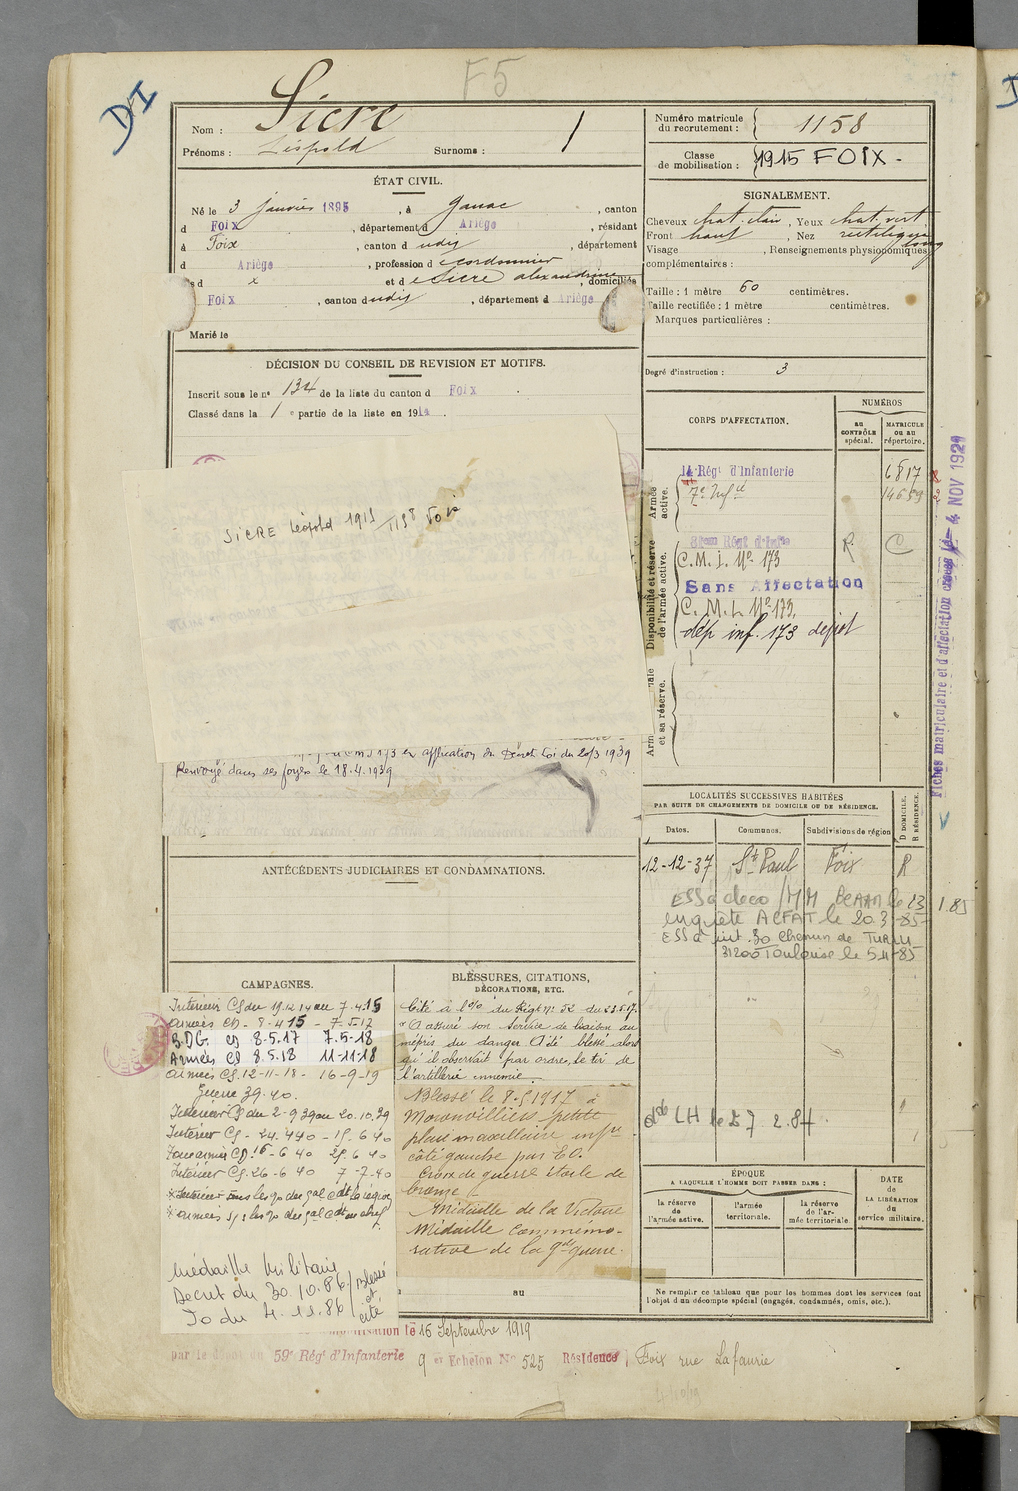 F5
DI
Nom : Sicre
Prénoms : Léopold Surnoms :
Numéro matricule du recrutement : 1158
Classe de mobilisation : 1915 FOIX -
ÉTAT CIVIL.
Né le 3 janvier 1895, à Ganac, canton
d Foix, département d Ariège, résidant
à Foix, canton d udit, département
d Ariège, profession d cordonnier
s d x et d e Sicre alexandrine, domiciliés
Foix, canton dudit, département d Ariège
Marié le
SIGNALEMENT.
Cheveux chat. clair, Yeux chat. vert
Front haut, Nez rectiligne long
Visage , Renseignements physionomiques
complémentaires :
Taille : 1 mètre 60 centimètres.
Taille rectifiée : 1 mètre centimètres.
Marques particulières :
Degré d'instruction : 3
DÉCISION DU CONSEIL DE REVISION ET MOTIFS.
Inscrit sous le n° 134 de la liste du canton d Foix.
Classé dans la 1e partie de la liste en 1914.
SICRE Léopold 1915 1158 Foix
en application du Décret Loi du 20/3 1939
Renvoyé dans ses foyers le 18.4.1939
CORPS D'AFFECTATION.
NUMÉROS
AU CONTRÔLE spécial.
MATRICULE OU AU répertoire.
Armée active.
14 Régt d'Infanterie 6817
7e Infie 14659
Disponibilité et réserve de l'armée active.
Régt d'Infie R C
C.M.I. N° 173
Sans Affectation
C.M.I. N° 173.
dép inf. 173 dépôt
et sa réserve.
Fiches matriculaire et d'affectation créées le 4 NOV 1921
LOCALITÉS SUCCESSIVES HABITÉES
PAR SUITE DE CHANGEMENTS DE DOMICILE OU DE RÉSIDENCE.
Dates. Communes. Subdivisions de région D DOMICILE. R RÉSIDENCE.
12-12-37 St Paul Foix R
ESS à deco /MM BCAAM le 23 1.85
enquête ACFAT le 20.3-85-
ESS à int. 30 Chemin de
31200 Toulouse le 5.11-85
LH le 27 2.84.
ANTÉCÉDENTS JUDICIAIRES ET CONDAMNATIONS.
CAMPAGNES.
Intérieur CS du 19.12.14 au 7-4-15
Armées CD - 8-4 15 - 7-5-17
B.D.G. CD 8-5.17 7.5-18
Armées CD 8.5.18 11-11-18
Armées CS.12-11-18- 16-9-19
Guerre 39.40.
Intérieur CS du 2-9 39 au 20.10.39
Intérieur CS - 24.4 40 - 15. 6 40
Zone armées CD 16-6 40 25.6 40
Intérieur CS. 26-6 40 7-7-40
Médaille Militaire
Decret du 30.10.86
Jo du 4.11.86
Blessé et cité
BLESSURES, CITATIONS,
DÉCORATIONS, ETC.
Cité à l'o/ du Régt n° 52 du 23.5.17.
"A assuré son service de liaison au
mépris du danger A été blessé alors
qu'il observait par ordre, le tir de
l'artillerie ennemie.
Blessé le 8-5 1917 à
Moronvilliers petite
plaie maxillaire infre
côté gauche par EO.
Croix de guerre étoile de
bronze
Médaille de la Victoire
Médaille commémo-
rative de la gde guerre.
au
ÉPOQUE
A LAQUELLE L'HOMME DOIT PASSER DANS :
la réserve de l'armée active.
l'armée territoriale.
la réserve de l'armée territoriale.
DATE de LA LIBÉRATION du service militaire.
Ne remplir ce tableau que pour les hommes dont les services font
l'objet d'un décompte spécial (engagés, condamnés, omis, etc.).
le 16 Septembre 1919
par le dépôt du 59e Régt d'Infanterie 9 er Echelon N° 525 Résidence Foix rue Lafaurie